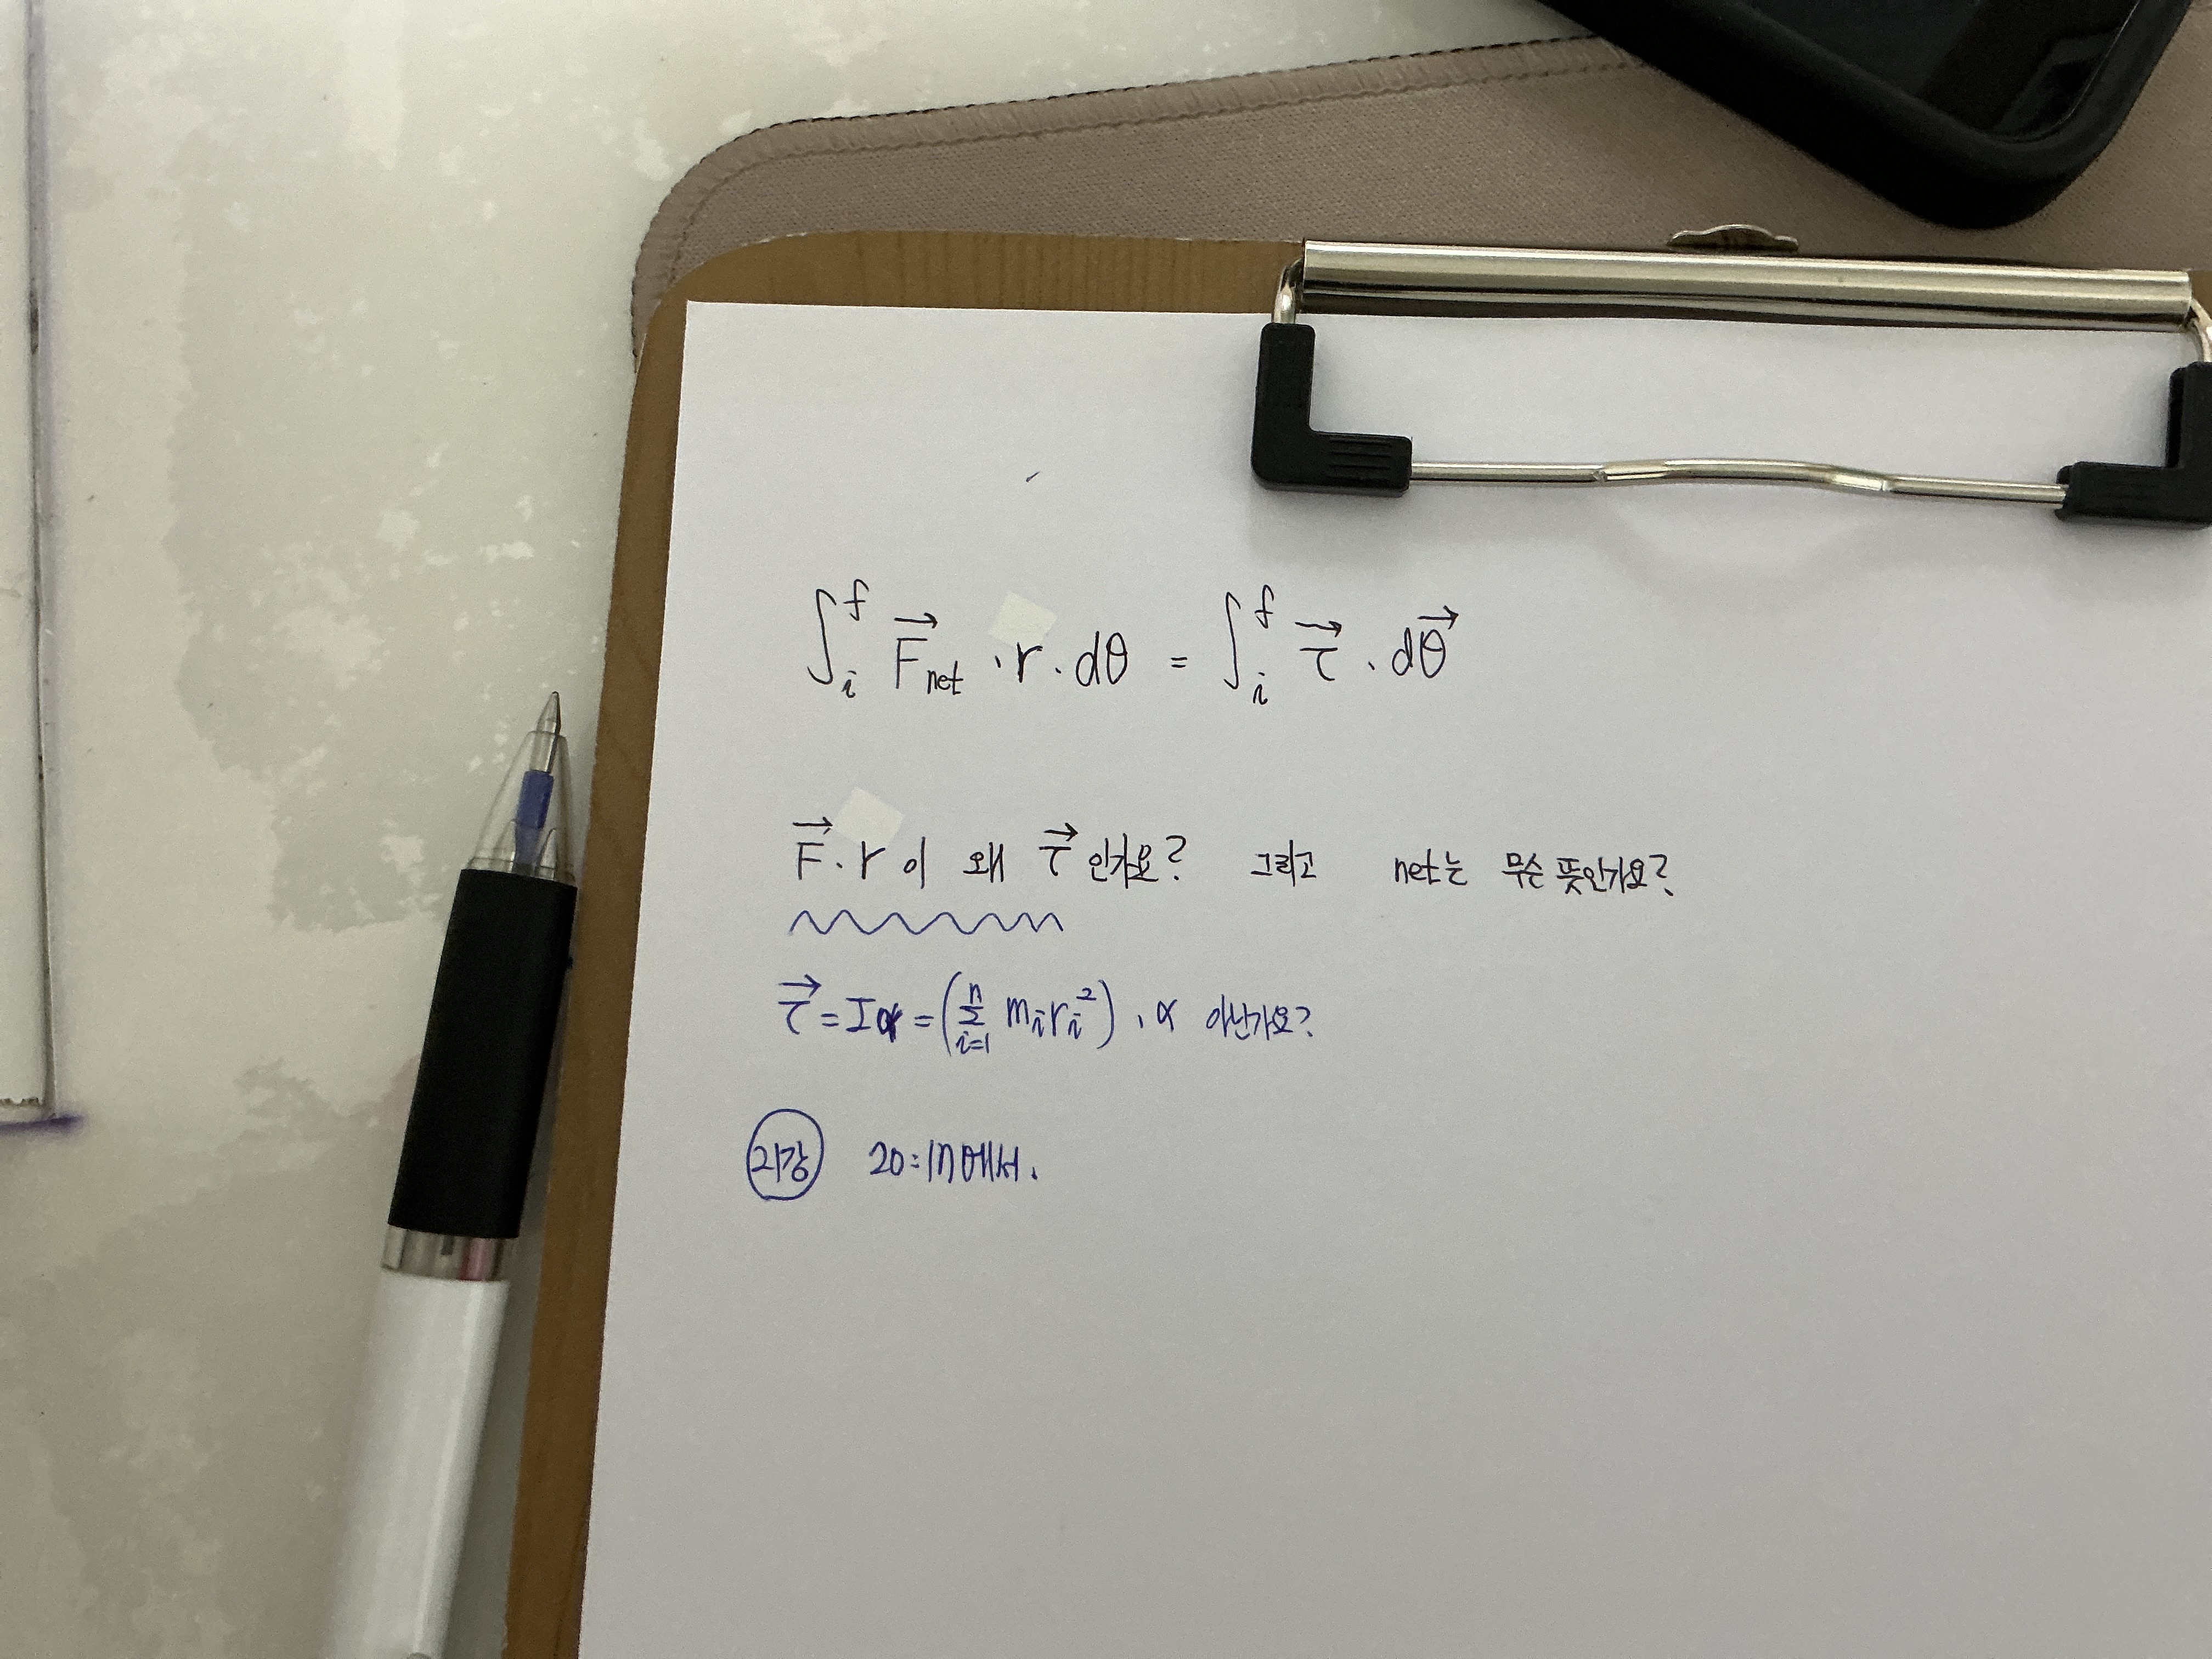 ∫ᵢᶠ F⃗net · r · dθ = ∫ᵢᶠ τ⃗ · dθ⃗
F⃗ · r 이 왜 τ⃗ 인가요? 그리고 net는 무슨 뜻인가요?
τ⃗ = Iα = (∑ⁿᵢ₌₁ mᵢrᵢ²) · α 아닌가요?
21강 20:17에서.